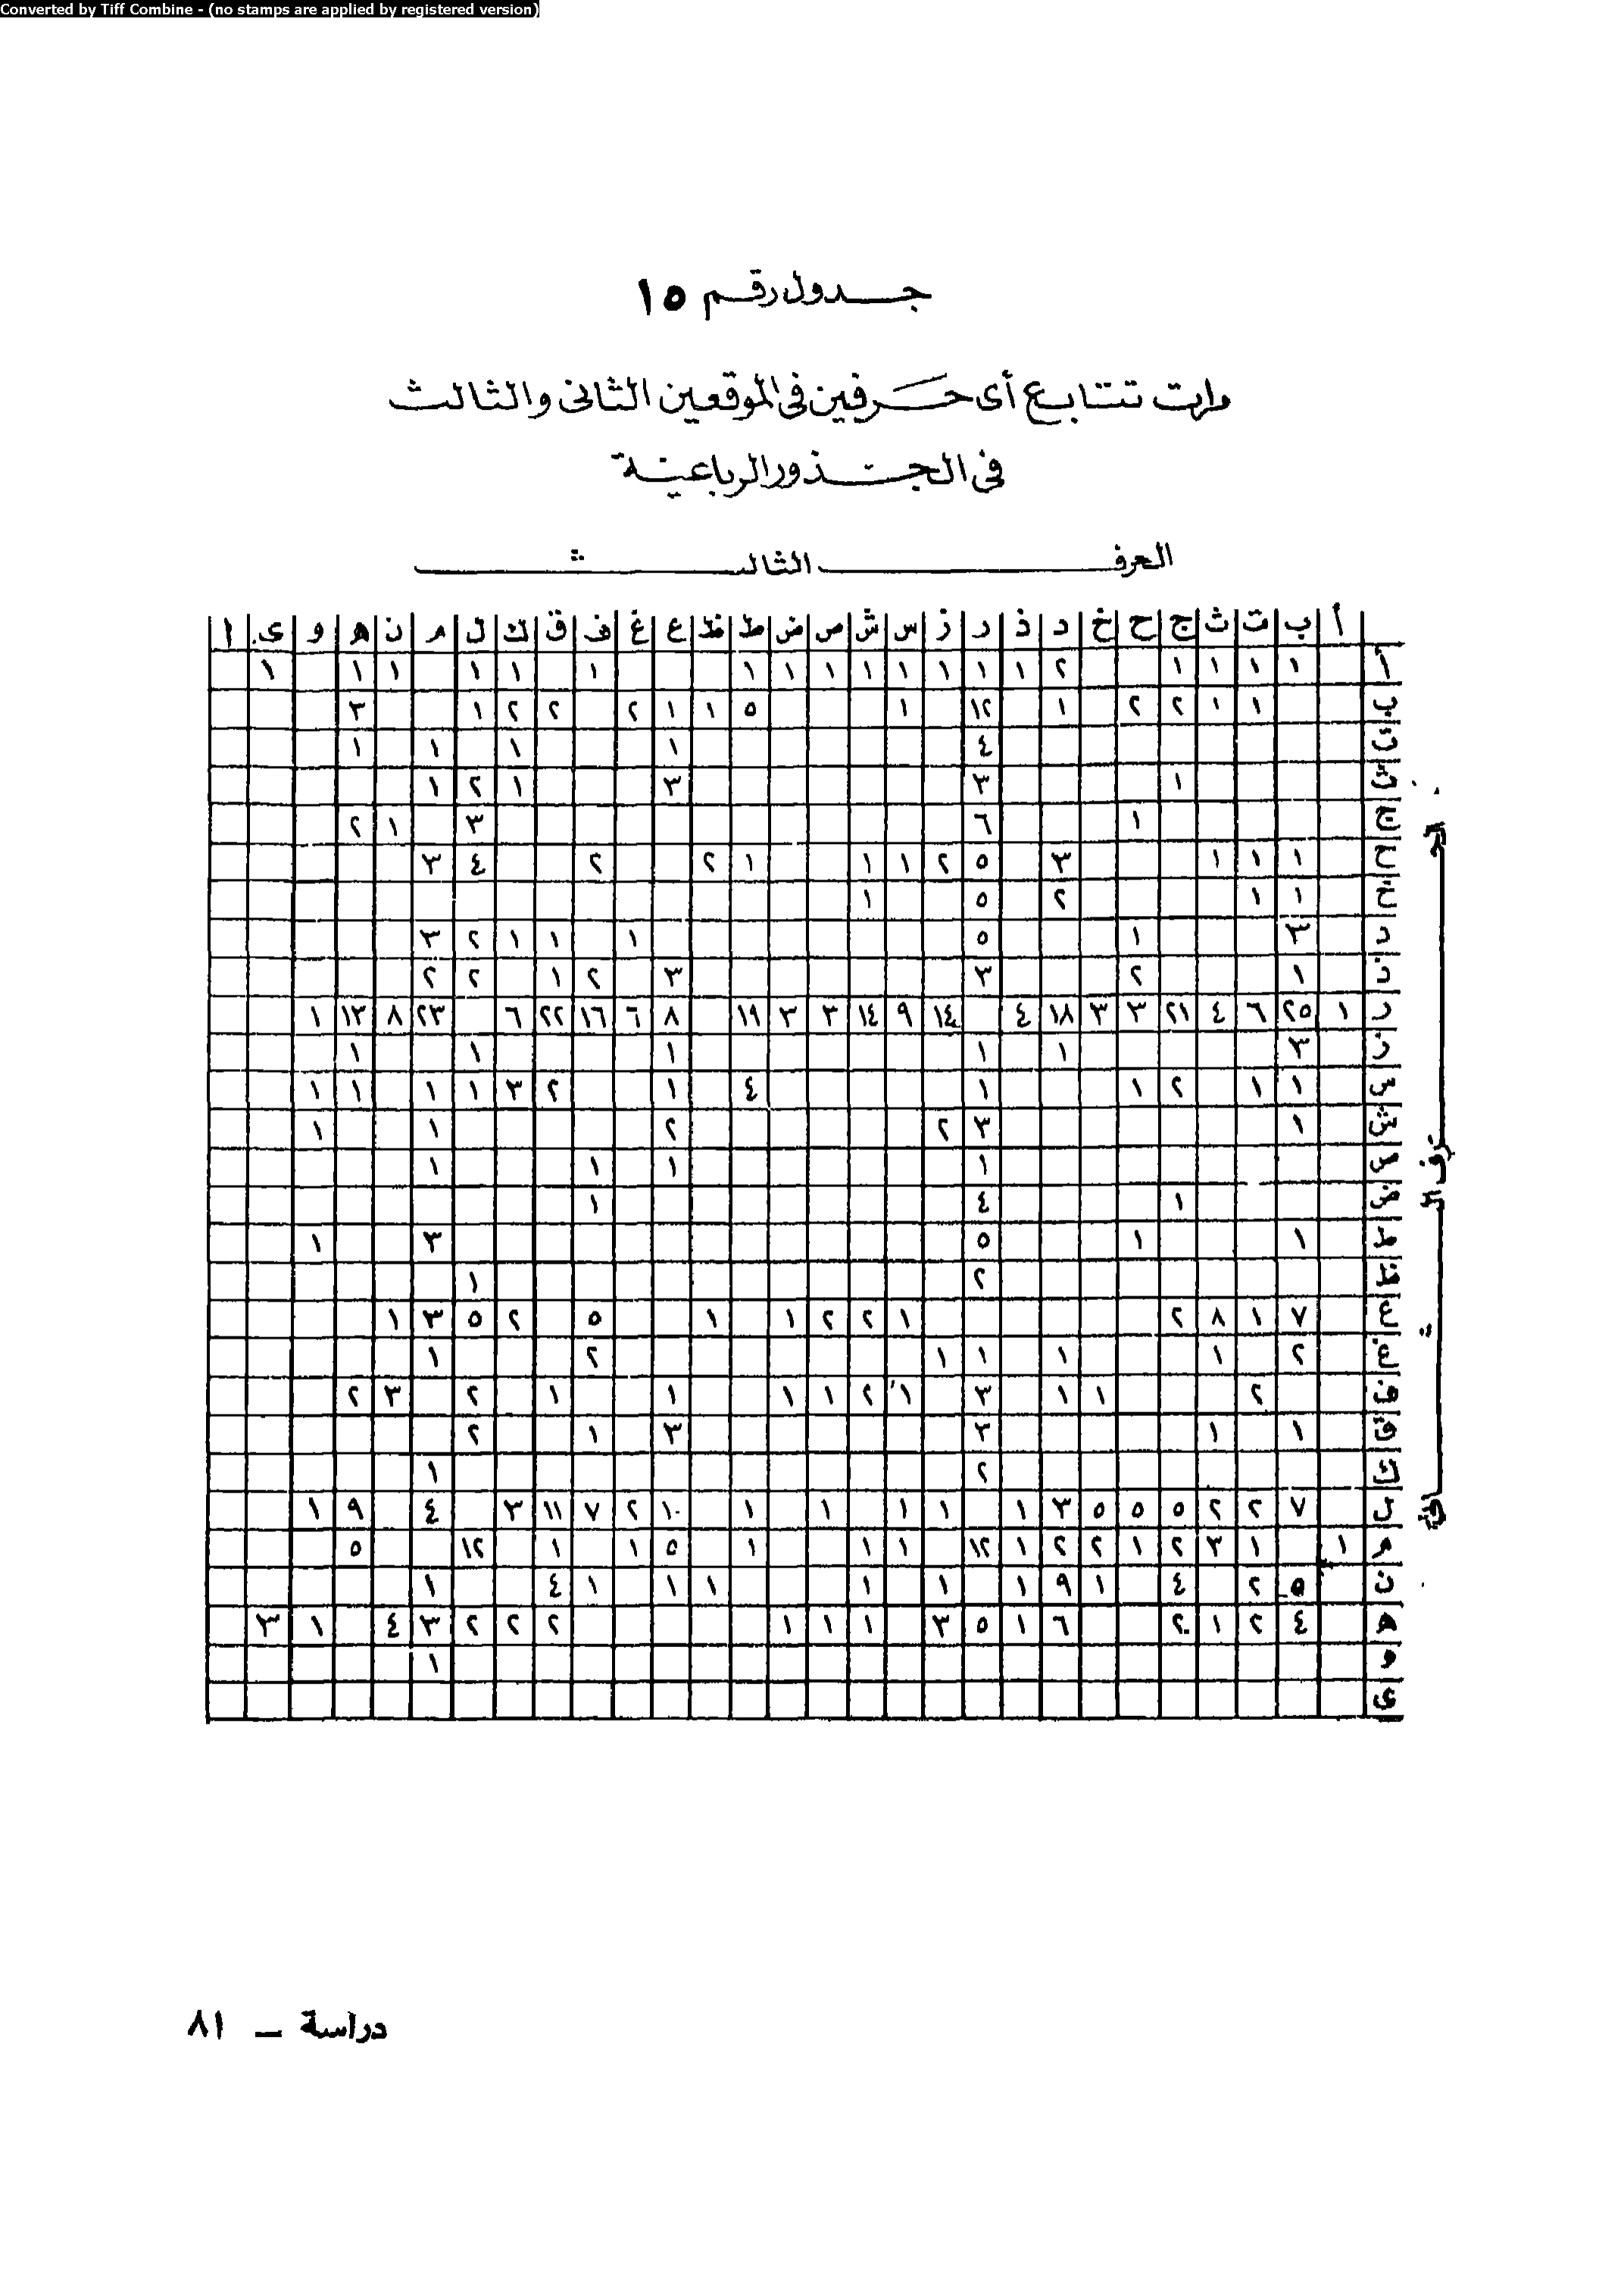 Converted by Tiff Combine - (no stamps are applied by registered version)
جدول رقم ١٥
مرات تتابع أى حرفين فى الموقعين الثانى والثالث
فى الجذور الرباعية
الحرف الثالث
أ ب ت ث ج ح خ د ذ ر ز س ش ص ض ط ظ ع غ ف ق ك ل م ن ه و ى ا
الحرف الثانى
أ ١ ١ ١ ١ ٢ ١ ١ ١ ١ ١ ١ ١ ١ ١ ١ ١ ١ ١ ١
ب ١ ١ ٢ ٢ ١ ١٢ ١ ٥ ١ ١ ٢ ٢ ٢ ١ ٣
ت ٤ ١ ١ ١ ١
ث ١ ٣ ٣ ١ ٢ ١
ج ١ ٦ ٣ ١ ٢
ح ١ ١ ١ ٣ ٥ ٢ ١ ١ ١ ٢ ٢ ٤ ٣
خ ١ ١ ٢ ٥ ١
د ٣ ١ ٥ ١ ١ ١ ٢ ٣
ذ ١ ٢ ٣ ٣ ٢ ١ ٢ ٢
ر ١ ٢٥ ٦ ٤ ٢١ ٣ ٣ ١٨ ٤ ١٤ ٩ ١٤ ٣ ٣ ١٩ ٨ ٦ ١٦ ٢٢ ٦ ٢٣ ٨ ١٣ ١
ز ٣ ١ ١ ١ ١ ١
س ١ ١ ٢ ١ ١ ٤ ١ ٢ ٣ ١ ١ ١ ١
ش ١ ٣ ٢ ٢ ١ ١
ص ١ ١ ١ ١
ض ١ ٤ ١
ط ١ ١ ٥ ٣ ١
ظ ٢ ١
ع ٧ ١ ٨ ٢ ١ ٢ ٢ ١ ١ ٥ ٢ ٥ ٣ ١
غ ٢ ١ ١ ١ ١ ٢ ١
ف ٢ ١ ١ ٣ ١ ٢ ١ ١ ١ ١ ٢ ٣ ٢
ق ١ ١ ٣ ٣ ١ ٢
ك ٢ ١
ل ٧ ٢ ٢ ٥ ٥ ٥ ٣ ١ ١ ١ ١ ١ ١٠ ٢ ٧ ١١ ٣ ٤ ٩ ١
م ١ ١ ٣ ٢ ١ ٢ ٢ ١ ١٢ ١ ١ ١ ٥ ١ ١ ١٢ ٥
ن ٥ ٢ ٤ ١ ٩ ١ ١ ١ ١ ١ ١ ٤ ١
ه ٤ ٢ ١ ٢ ٦ ١ ٥ ٣ ١ ١ ١ ٢ ٢ ٢ ٣ ٤ ١ ٣
و ١
ى
دراسة – ٨١